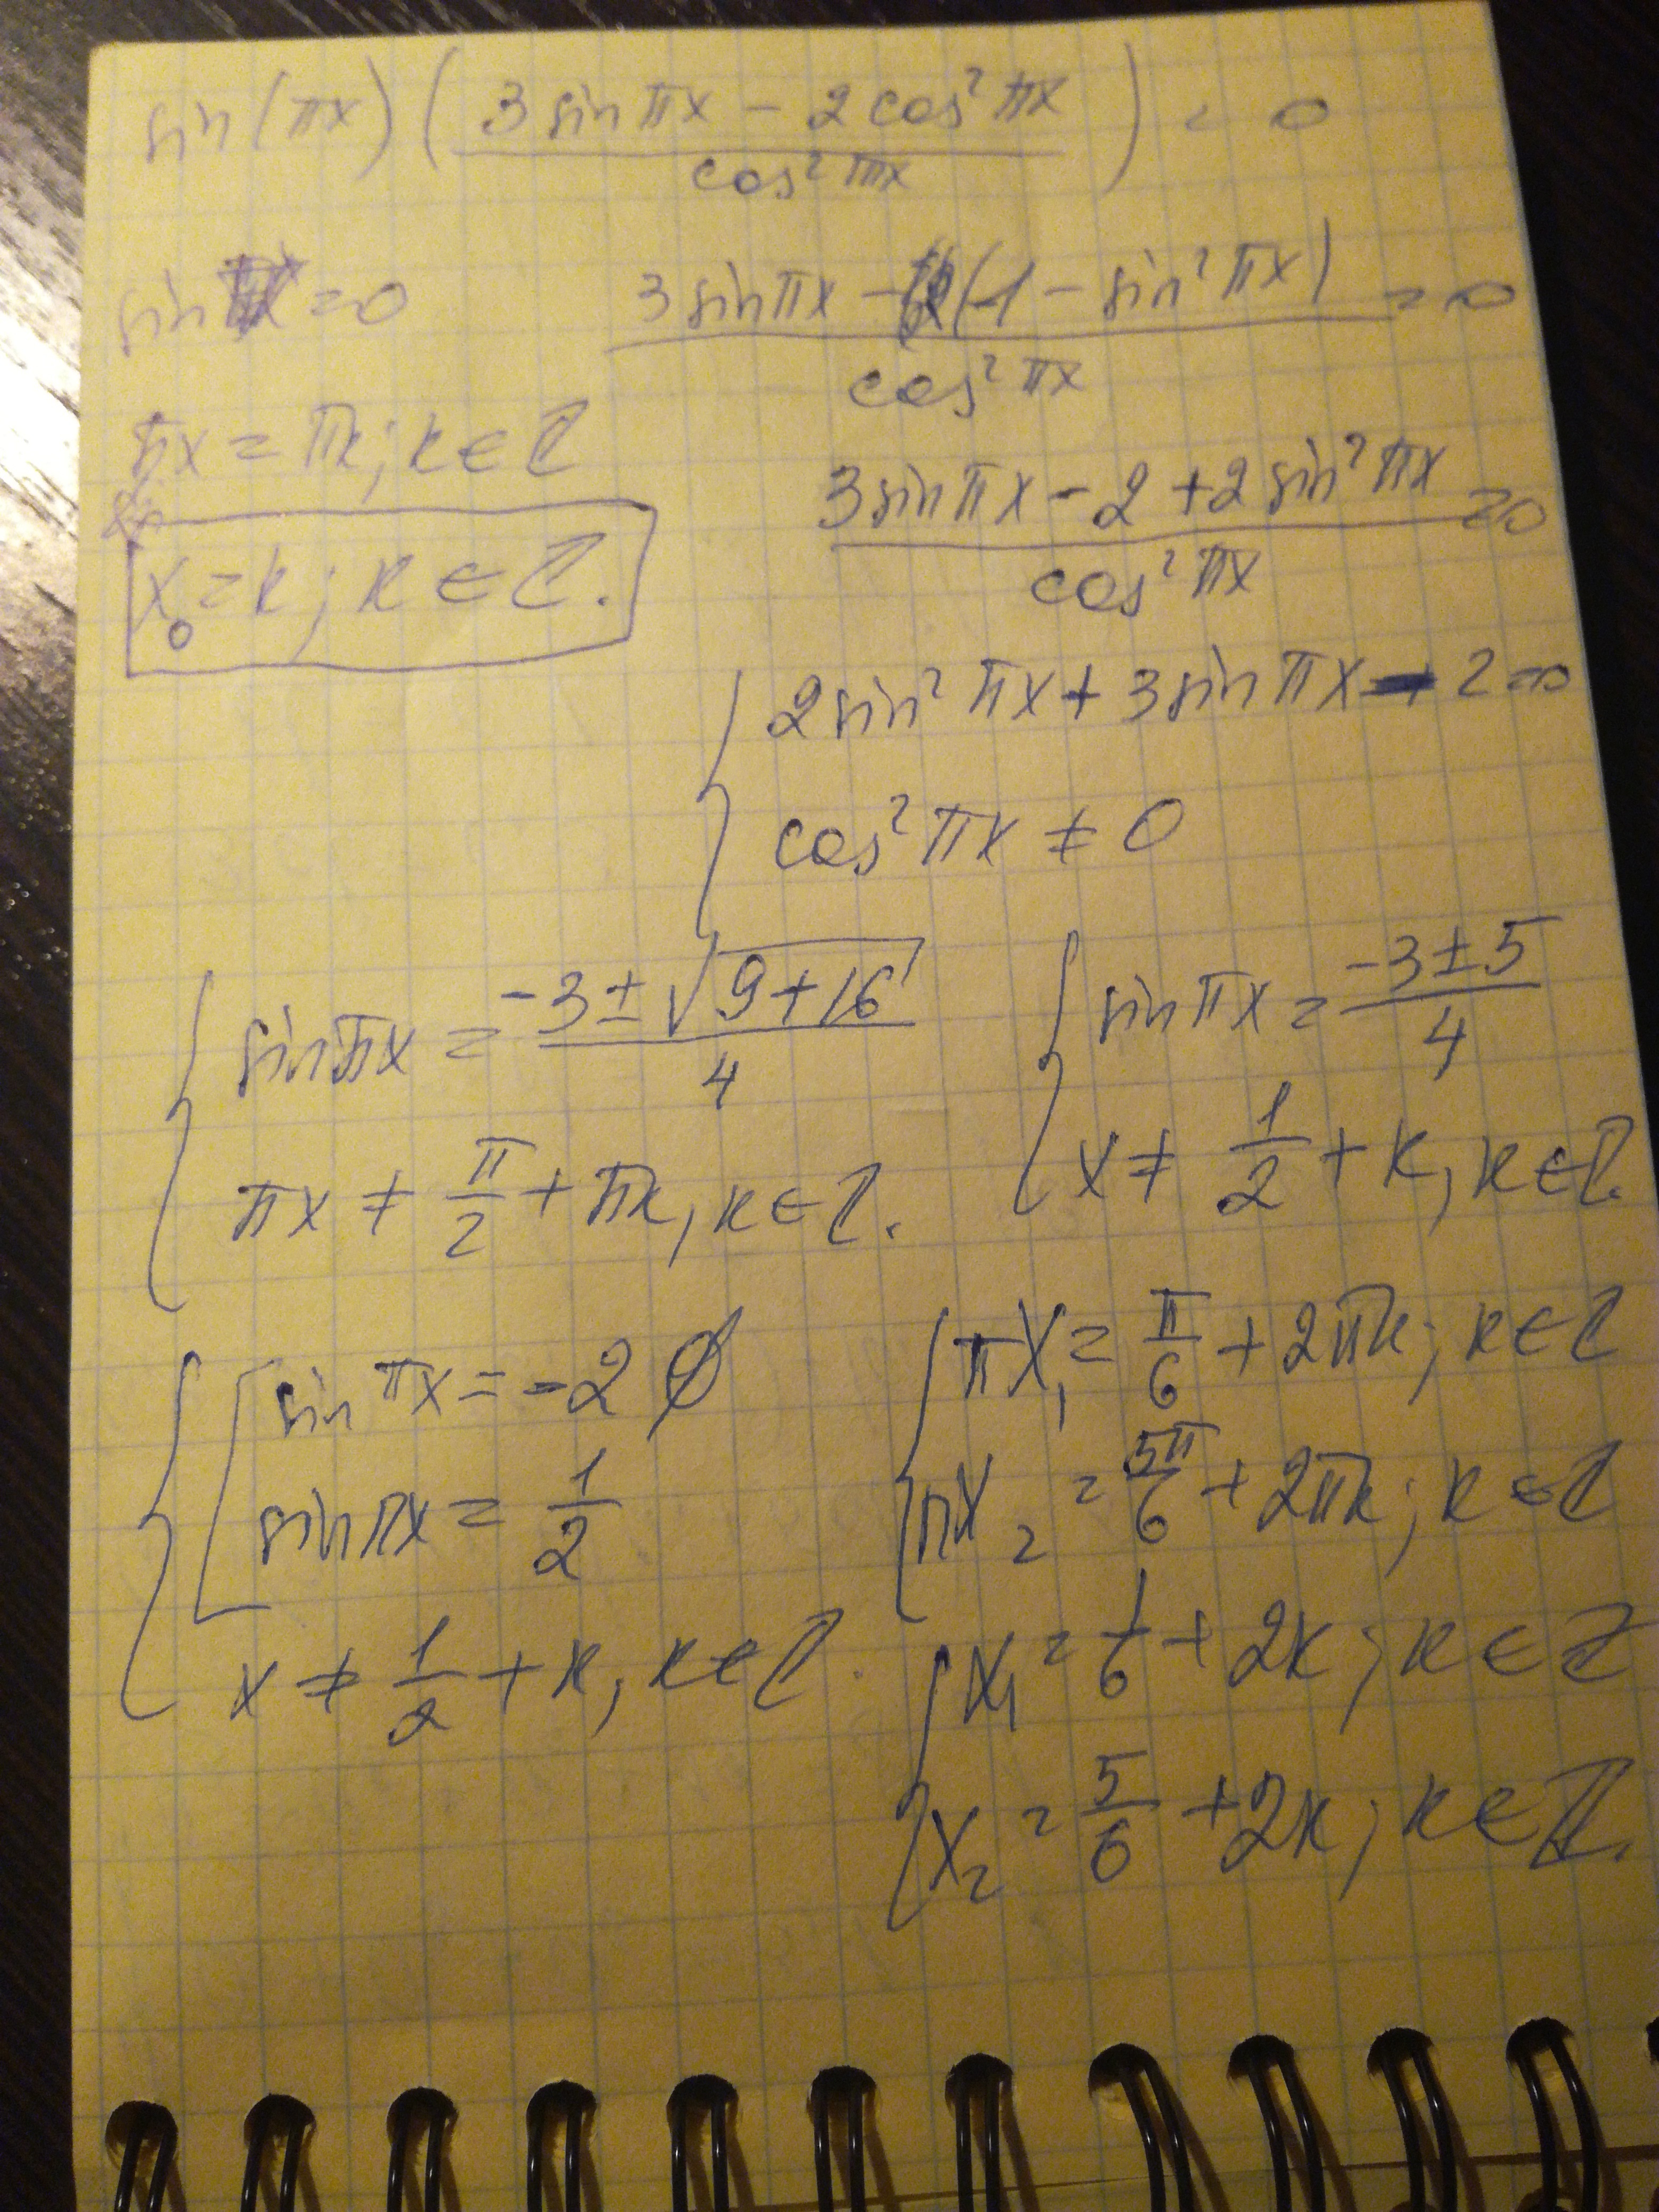 sin(πx)( (3sinπx - 2cos²πx) / cos²πx ) = 0
sin = 0
(3sinπx - (1 - sin²πx)) / cos²πx = 0
πx = πk; k ∈ ℤ
x₀ = k; k ∈ ℤ.
(3sinπx - 2 + 2sin²πx) / cos²πx = 0
{ 2sin²πx + 3sinπx - 2 = 0
cos²πx ≠ 0
{ sinπx = (-3 ± √(9+16)) / 4
πx ≠ π/2 + πk, k ∈ ℤ.
{ sinπx = (-3 ± 5) / 4
x ≠ 1/2 + k, k ∈ ℤ.
{ [ sinπx = -2 ∅
sinπx = 1/2
x ≠ 1/2 + k, k ∈ ℤ.
{ πx₁ = π/6 + 2πk; k ∈ ℤ
πx₂ = 5π/6 + 2πk; k ∈ ℤ
{ x₁ = 1/6 + 2k; k ∈ ℤ
x₂ = 5/6 + 2k; k ∈ ℤ.